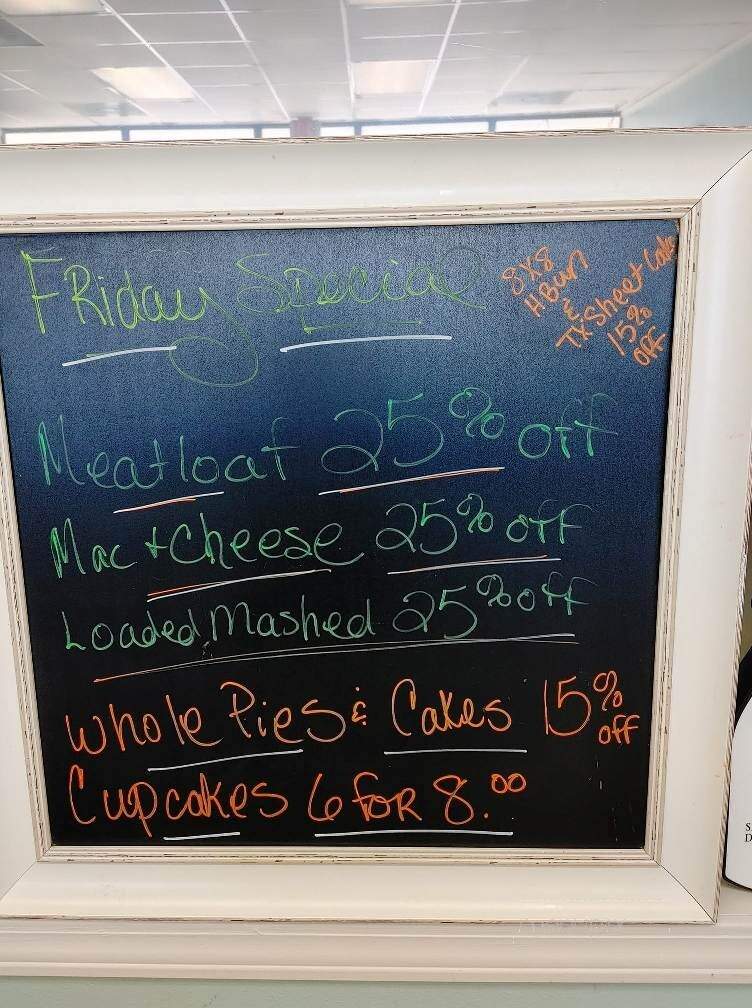 Friday Special
8x8
H Bun
&
TX Sheet Cake
15%
off
Meatloaf 25% off
Mac + Cheese 25% off
Loaded Mashed 25% off
Whole Pies & Cakes 15% off
Cupcakes 6 for 8.00